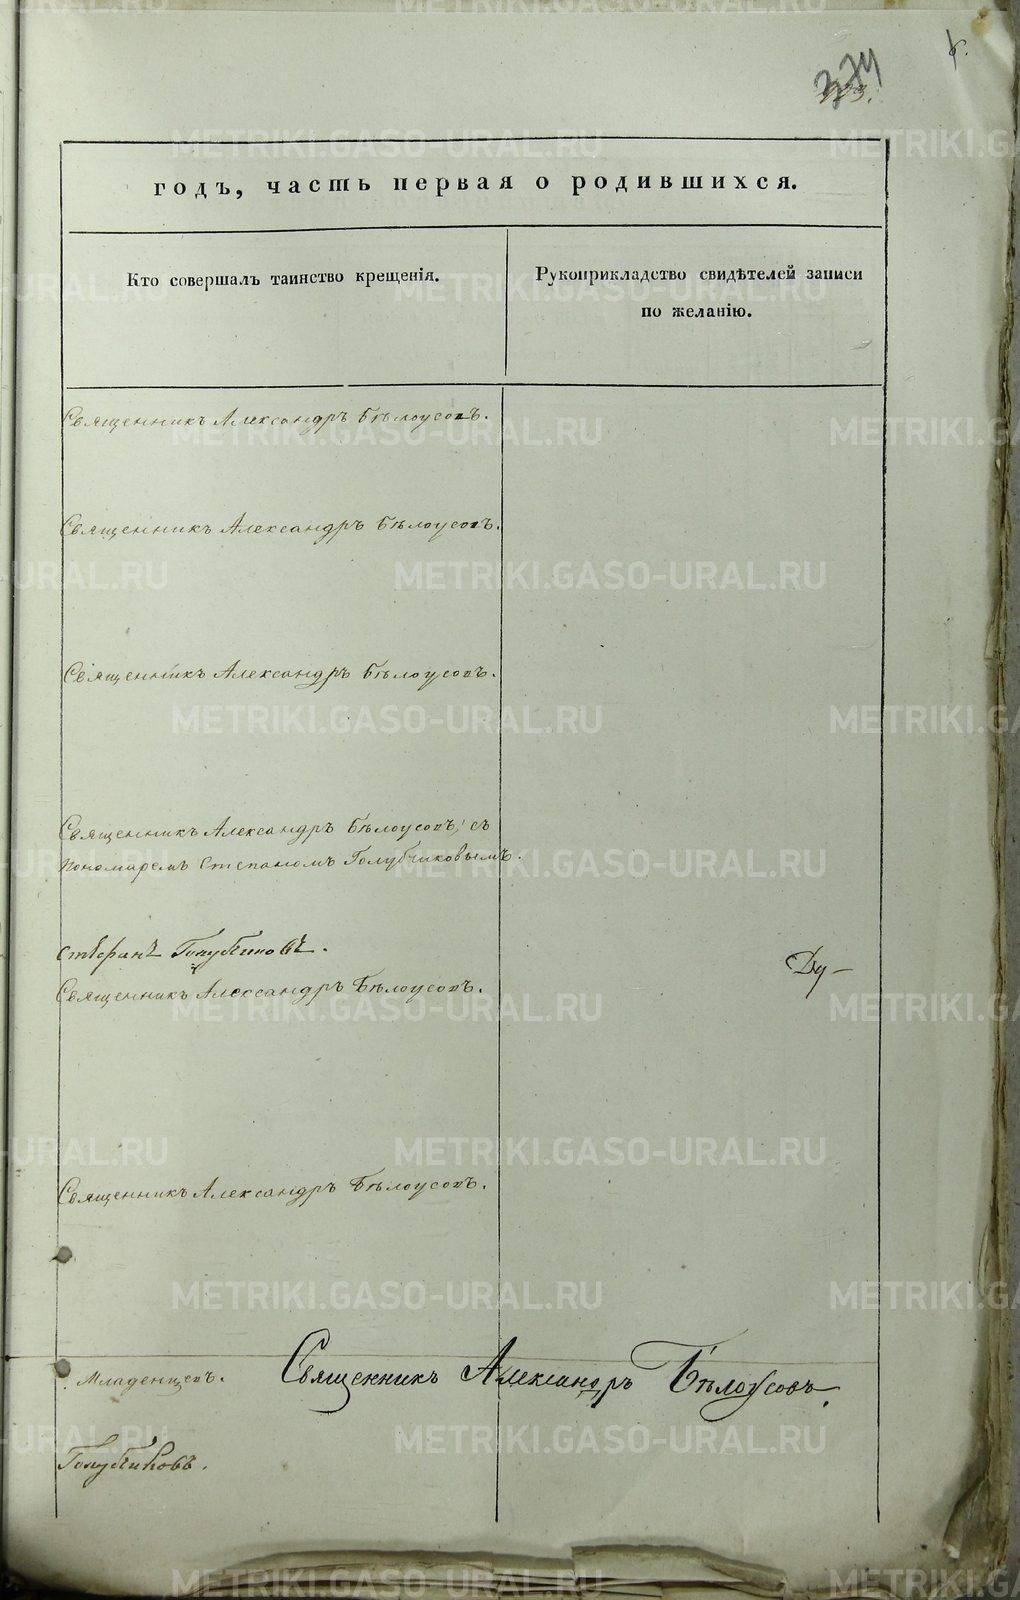 374
годъ, часть первая о родившихся.
Кто совершалъ таинство крещенія.
Рукоприкладство свидѣтелей записи
по желанію.
Священникъ Александръ Бѣлоусовъ.
Священникъ Александръ Бѣлоусовъ.
Священникъ Александръ Бѣлоусовъ.
Священникъ Александръ Бѣлоусовъ, съ
пономаремъ Степаномъ Голубчиковымъ.
Стефанъ Голубчиковъ.
Ду-
Священникъ Александръ Бѣлоусовъ.
Священникъ Александръ Бѣлоусовъ.
Младенцевъ.
Священникъ Александръ Бѣлоусовъ.
Голубчиковъ.
METRIKI.GASO-URAL.RU